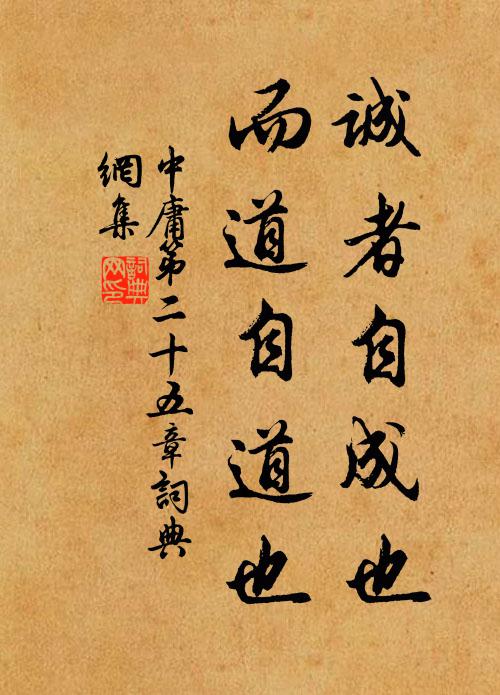 誠者自成也
而道自道也
中庸第二十五章詞典
網集
詞典
网印